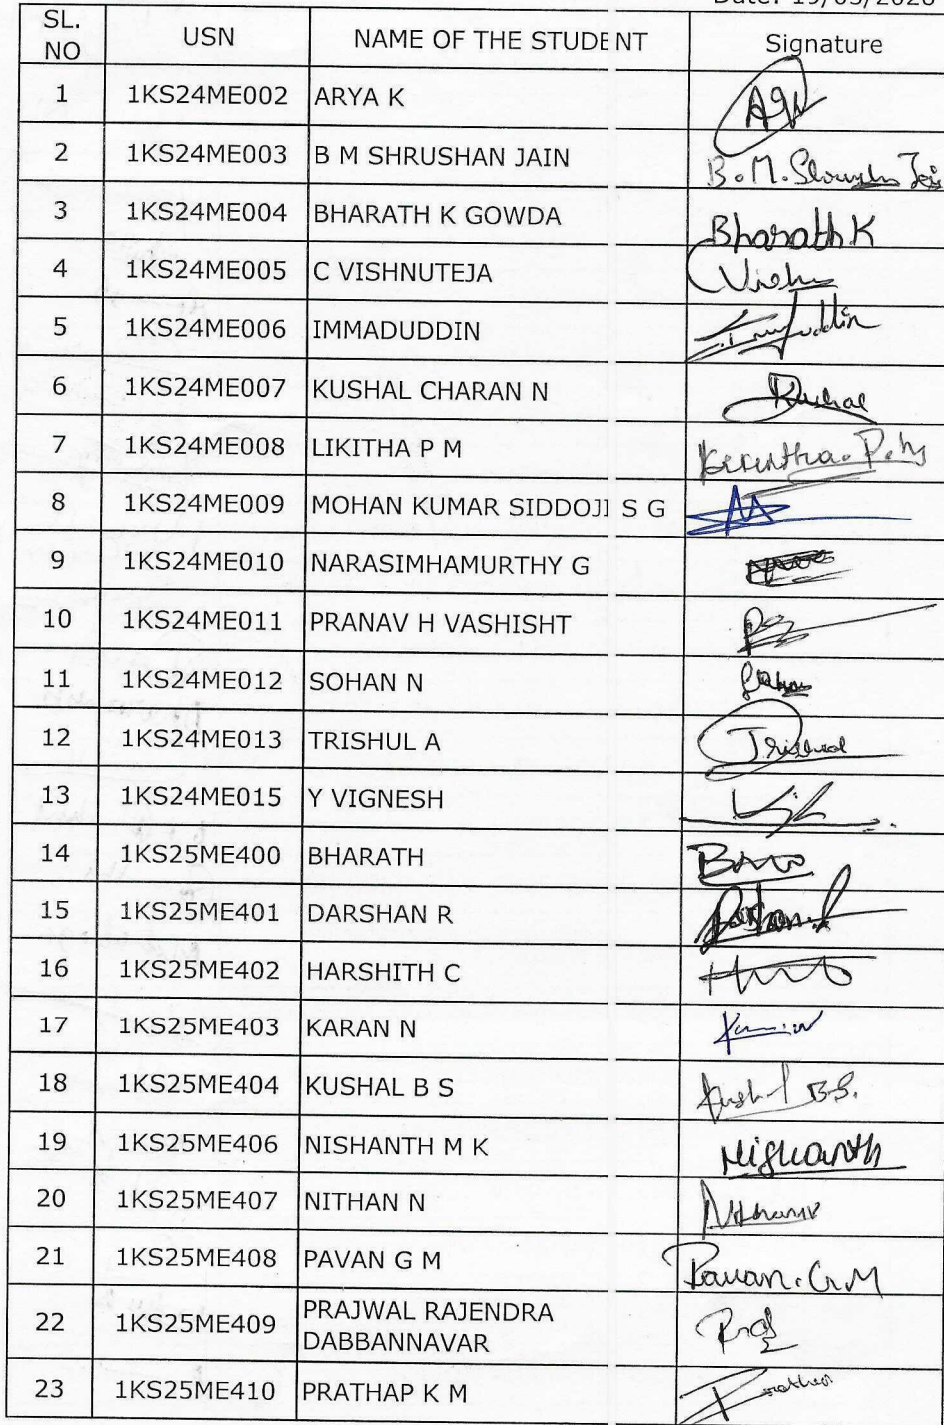 Date: 19/03/2026
SL. NO USN NAME OF THE STUDENT Signature
1 1KS24ME002 ARYA K
2 1KS24ME003 B M SHRUSHAN JAIN B.M.
3 1KS24ME004 BHARATH K GOWDA Bharath K
4 1KS24ME005 C VISHNUTEJA
5 1KS24ME006 IMMADUDDIN
6 1KS24ME007 KUSHAL CHARAN N Kushal
7 1KS24ME008 LIKITHA P M
8 1KS24ME009 MOHAN KUMAR SIDDOJI S G
9 1KS24ME010 NARASIMHAMURTHY G
10 1KS24ME011 PRANAV H VASHISHT
11 1KS24ME012 SOHAN N
12 1KS24ME013 TRISHUL A Trishul
13 1KS24ME015 Y VIGNESH
14 1KS25ME400 BHARATH
15 1KS25ME401 DARSHAN R
16 1KS25ME402 HARSHITH C
17 1KS25ME403 KARAN N
18 1KS25ME404 KUSHAL B S Kushal B.S.
19 1KS25ME406 NISHANTH M K Nishanth
20 1KS25ME407 NITHAN N
21 1KS25ME408 PAVAN G M Pavan.G.M
22 1KS25ME409 PRAJWAL RAJENDRA
DABBANNAVAR
23 1KS25ME410 PRATHAP K M